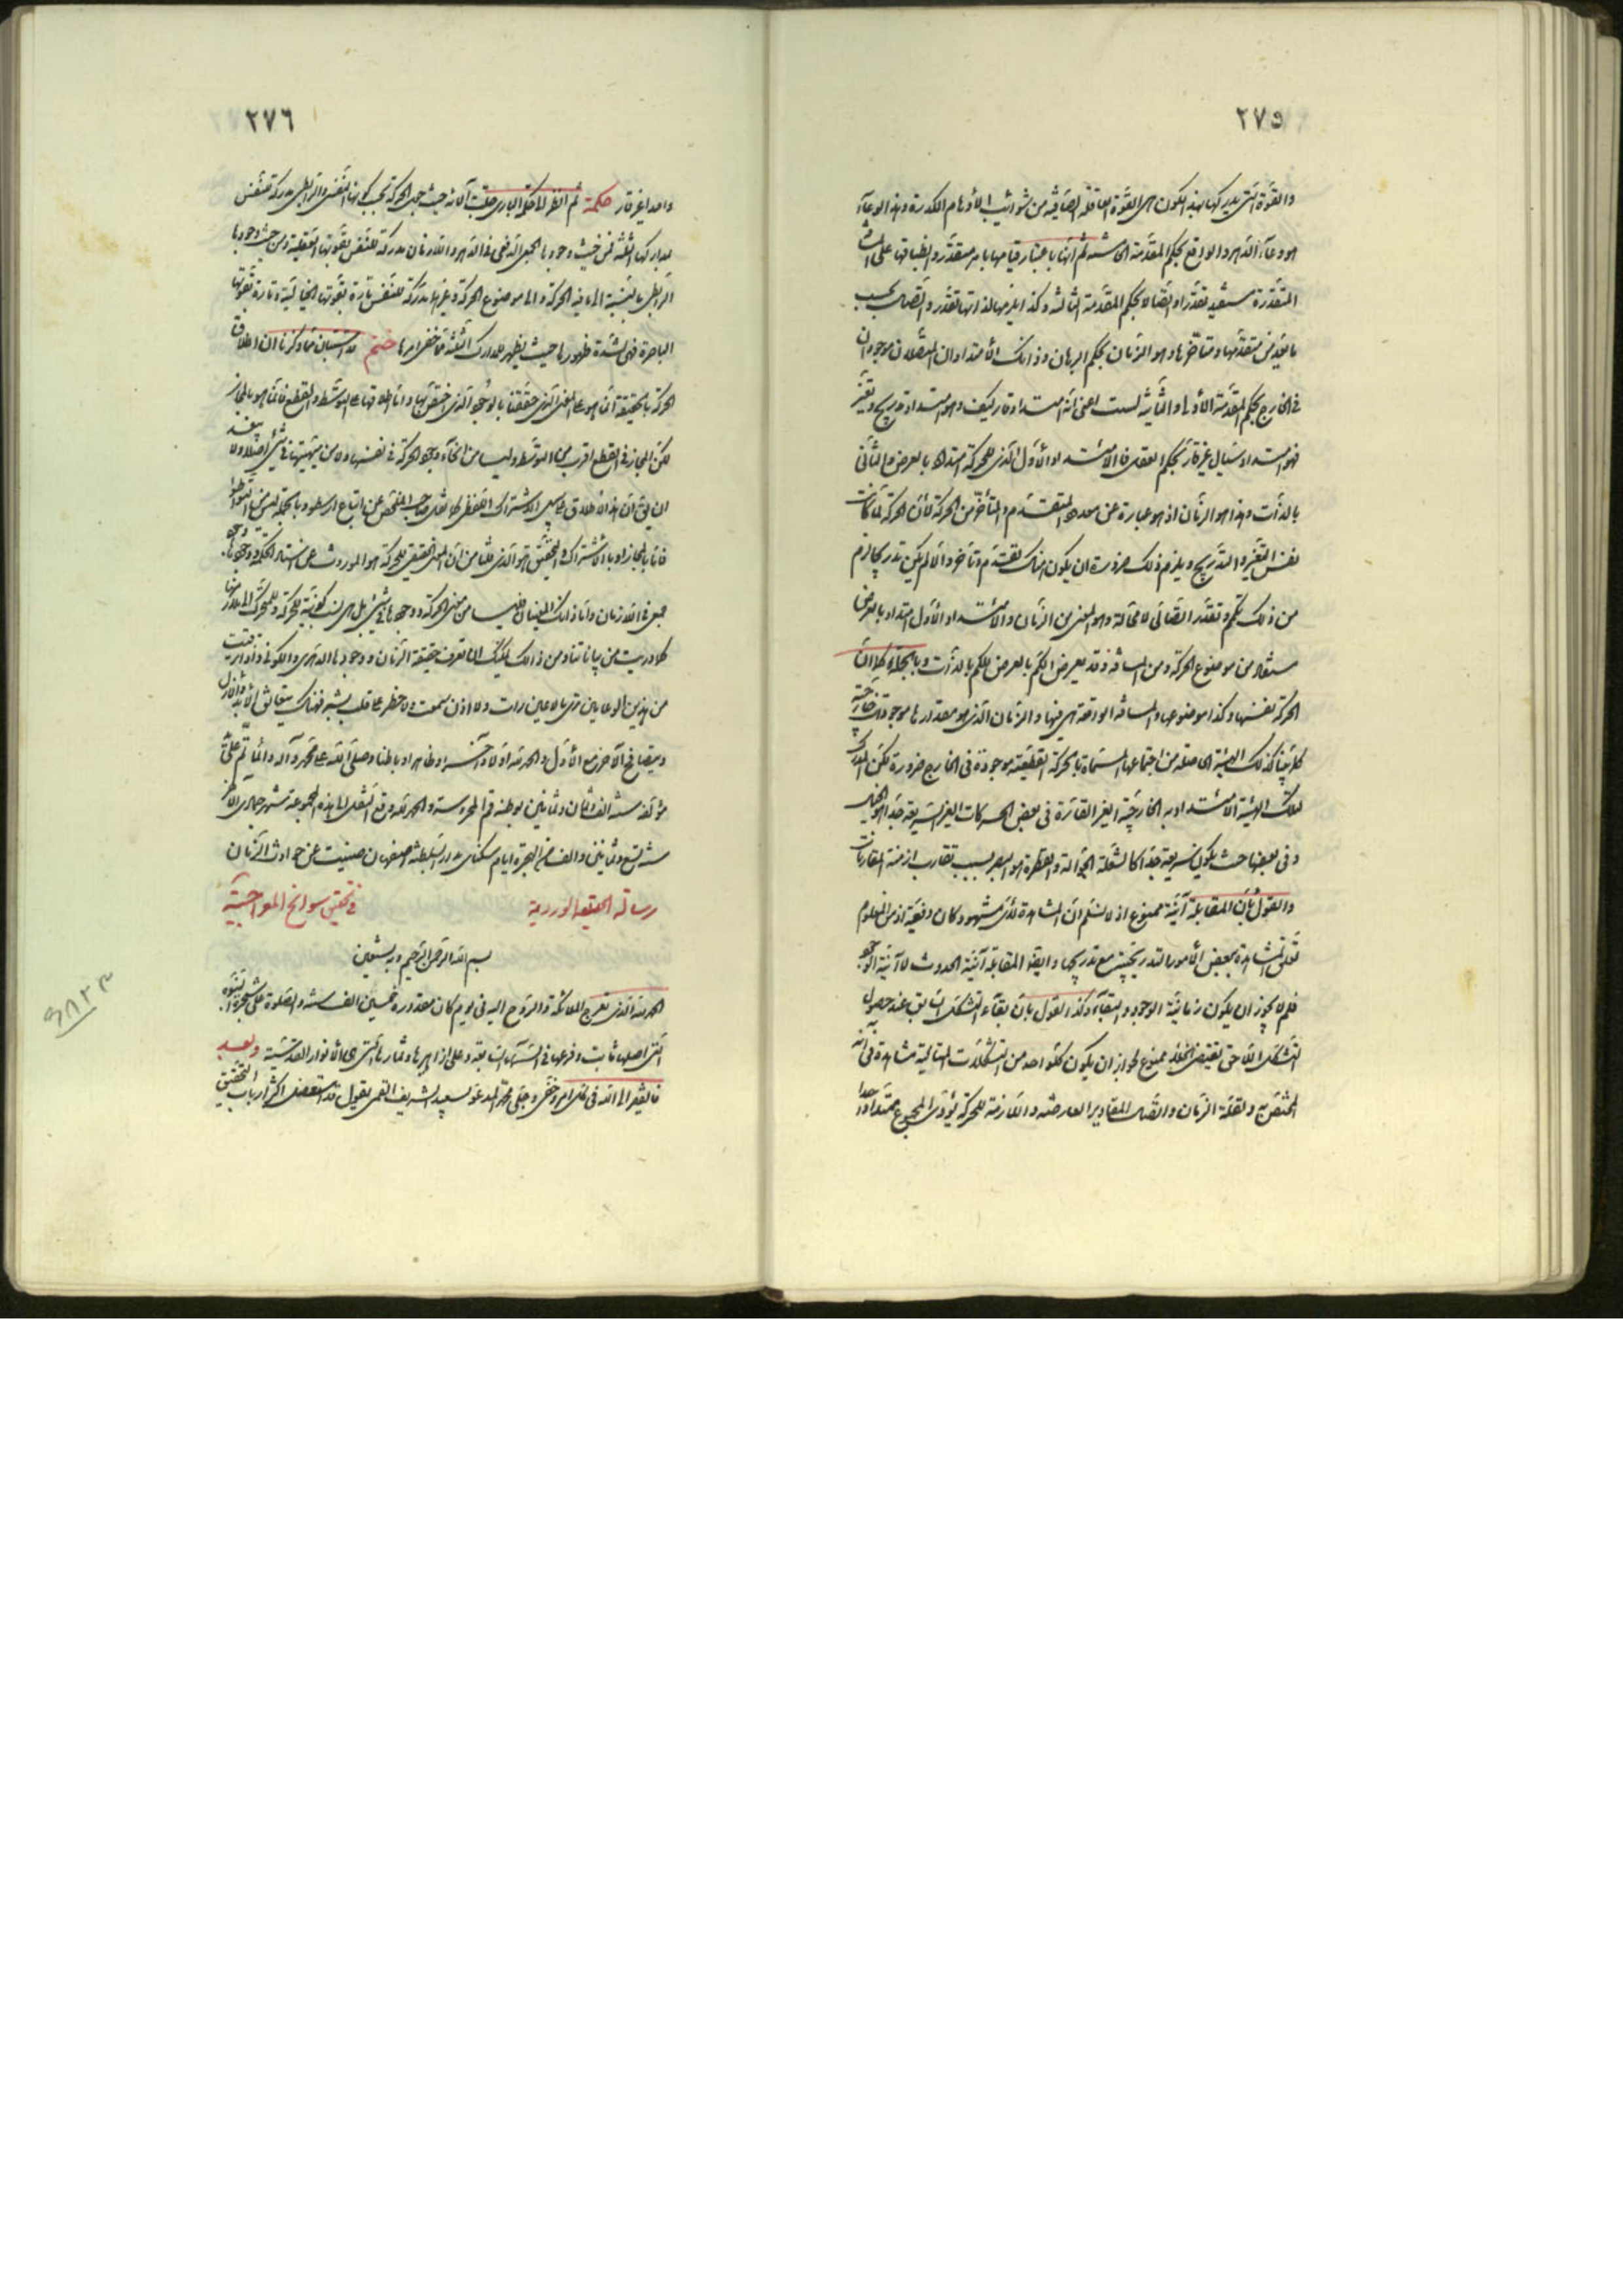 ٢٧٥
والقوة التي يدركها بهذا الكون هي القوة العاقلة الصافية من شوائب الأوهام الكدرة وهذا الوعاء
هو وعاء الدهر والواقع بحكم المقدمة الخامسة ثم انها باعتبار قيامها بامر متقدر وانطباقها على المسافة
المتقدرة مستفيد تقدرا واتصالا بحكم المقدمة الثالثة وكذا يلزمها لذاتها تقدر واتصال بحسب
ما يعرض متقدمها ومتأخرها وهو الزمان بحكم البرهان وذانك الامتدادان المتصلان موجودان
في الخارج بحكم المقدمة الأولى والثانية لست اعني انه امتداد قار كيف وهو امتداد تدريج وتغير
فهو امتداد سيال غير قار بحكم العقل فالامتداد الأول الذي للحركة امتداد بالعرض والثاني
بالذات وهذا هو الزمان اذ هو عبارة عن عدد المتقدم والمتأخر من الحركة لأن الحركة لما كانت
نفس التغير والتدريج ويلزم ذلك ضرورة ان يكون هناك تقدم وتأخر والا لم يكن تدريجا لزم
من ذلك تكمم وتقدر اتصالي لا محالة وهو المعني من الزمان والامتداد الأول امتداد بالعرض
مستفاد من موضوع الحركة ومن المسافة وقد يعرض الكم بالعرض للكم بالذات وبالجملة كما ان
الحركة نفسها وكذا موضوعها والمسافة الواقعة هي فيها والزمان الذي هو مقدارها موجودات خارجية
كذلك الهيئة الحاصلة من اجتماعها المسماة بالحركة القطعية موجودة في الخارج ضرورة لكن المدرك
لتلك الهيئة الامتدادية الخارجية الغير القارة في بعض الحركات الغير السريعة جدا هو الخيال
وفي بعضها حيث يكون سريعة جدا كالشعلة الجوالة والقطرة هو البصر بسبب تقارب ازمنة المقارنات
والقول بأن المقابلة آنية ممنوع اذ لا نسلم ان المشاهدة لأي مشهود كان دفعية اذ من المعلوم
تعلق المشاهدة ببعض الأمور التدريجية مع تدريجها وايضا المقابلة آنية الحدوث لا آنية الوجود
فلم لا يجوز ان يكون زمانية الوجود والبقاء وكذا القول بأن بقاء التشكل السابق عند حصول
التشكل اللاحق يقتضي الخلاء ممنوع لجواز ان يكون كل واحد من التشكلات المتتالية مشاهدة في آنه
المختص به ولقلة الزمان واتصال المقادير العارضة واللازمة للحركة يؤدى المجموع ممتدا واحدا
٢٧٦
واحدا غير قار حكمة ثم انظر الى حكمة الباري جلت آلائه حيث جعل الحركة بحسب كونها النفسي والرابطي مدركة للنفس
بمداركها الثلثة فمن حيث وجودها الجمعي الدفعي في الدهر واللازمان مدركة للنفس بقوتها العقلية ومن حيث وجودها
الرابطي بالنسبة الى ما فيه الحركة والى موضوع الحركة وغيرها مدركة للنفس تارة بقوتها الخيالية وتارة بقوتها
الباصرة فهي لشدة ظهورها حيث يظهر للمدارك الثلثة مما خفي امرها ختم قد استبان مما ذكرنا ان اطلاق
الحركة بالحقيقة انما هو على المعنى الذي حققنا بالوجود الذي اختص بها واما اطلاقها على التوسط والقطع فانما هو بالمجاز
لكن المجاز في القطع اقرب منه الى التوسط وليسا من انحاء وجود الحركة في نفسها ولا من مهيتها في شيء اصلا ولا يبعد
ان يق ان هذا الاطلاق على سبيل الاشتراك اللفظي كما نقل صاحب الملخص عن اتباع ارسطو وبالجملة ليس بالتواطؤ
فاما بالمجاز او بالاشتراك والتحقيق هو الذي قلنا من ان المعنى الحقيقي للحركة هو الموروث عن اساتيد الحكمة ووجودها
جمعي في اللازمان واما ذانك المعنيان فليسا من معنى الحركة ووجودها في شيء بل هي نسب كونية للحركة وللمتحرك الى ما ذكرنا
كما دريت من بياناتنا ومن ذلك يمكنك ان تعرف حقيقة الزمان ووجودها الدهري والكوني واذا ارتقيت
من هذين الوعائين ترى ما لا عين رات ولا اذن سمعت ولا خطر على قلب بشر فهناك يتعانق الأبد والأزل
ويتصافح الآخر مع الأول والحمد لله اولا وآخرا وظاهرا وباطنا وصلى الله على محمد وآله وانما تم على يد
مؤلفه سنة الف وثمان وثمانين بوطنه قم المحروسة والحمد لله وقع النقل الى هذه المجموعة شهر جمادى الآخر
سنة تسع وثمانين والف من الهجرة ايام سكناي بدار السلطنة اصفهان صينت عن حوادث الزمان
رسالة الحديقة الوردية في تحقيق سوانح المعراجية
بسم الله الرحمن الرحيم وبه نستعين
الحمد لله الذي تعرج الملائكة والروح اليه في يوم كان مقداره خمسين الف سنة والصلوة على شجرة النبوة
التي اصلها ثابت وفرعها في السماء السابعة وعلى ازاهيرها وثمارها التي هي الأنوار القدسية وبعد
فالفقير الى الله في كل امر خفي وجلي محمد المدعو بسعيد الشريف القمي يقول قد استعضل اكثر ارباب التحقيق